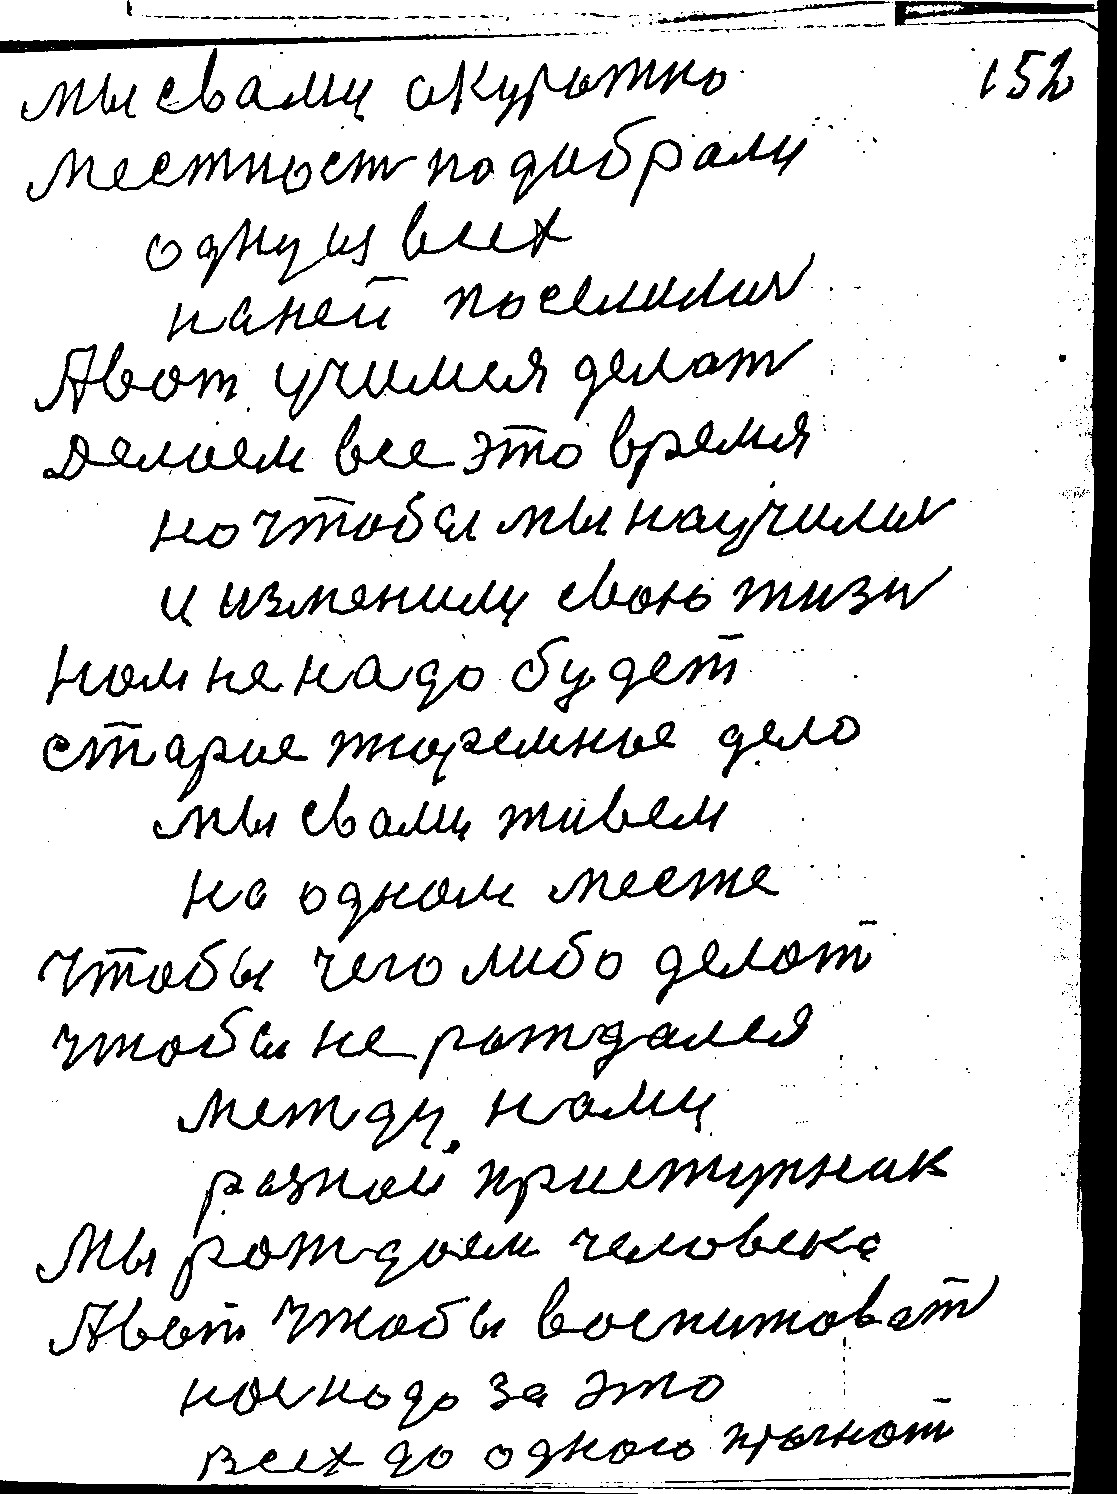 152
мы свами акуратно
местност подобрали
одну из всех
на ней поселилис
А вот учимся делат
делаем все это время
но чтобы мы научилис
и изменили свою жизн
нам не надо будет
старые тюремные дело
мы свами живем
на одном месте
чтобы чего либо делат
чтобы не рождался
между нами
разной приступник
Мы рождаем человека
А вот чтобы воспитоват
нас надо за это
всех до одного прыгнот